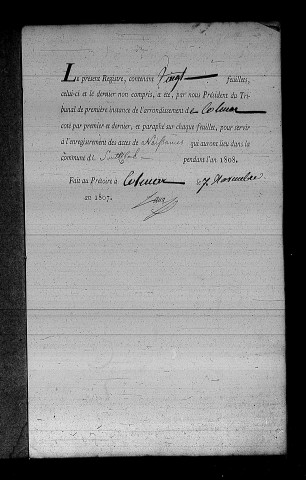 Le présent Registre, contenant Vingt feuilles,
celui-ci et le dernier non compris, a été, par nous Président du Tri-
bunal de première instance de l'arrondissement de Colmar
coté par premier et dernier, et paraphé sur chaque feuillet, pour servir
à l'enregistrement des actes de Naissances qui auront lieu dans la
commune de pendant l'an 1808.
Fait au Prétoire à Colmar le 7 Novembre
an 1807.